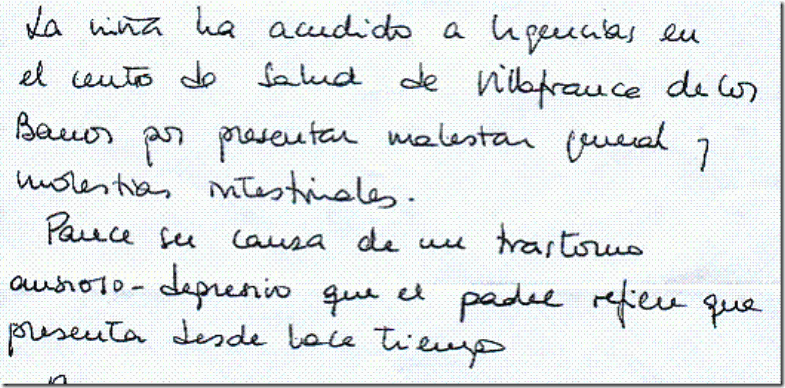 La niña ha acudido a Urgencias en
el centro de Salud de Villafranca de los
Barros por presentar malestar general y
molestias intestinales.
Parece ser causa de un trastorno
ansioso-depresivo que el padre refiere que
presenta desde hace tiempo